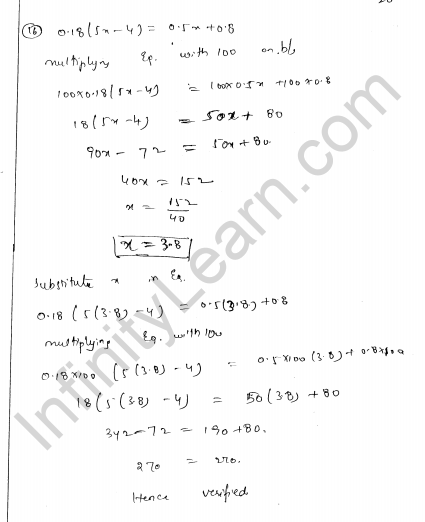 16) 0.18(5x-4) = 0.5x+0.8
multiplying Eq. with 100 on.b/s
100×0.18(5x-4) = 100×0.5x +100×0.8
18(5x-4) = 50x + 80
90x - 72 = 50x+80.
40x = 152
x = 152/40
x = 3.8
substitute x in Eq.
0.18 (5(3.8) - 4) = 0.5(3.8)+0.8
multiplying Eq. with 100
0.18×100 (5(3.8) - 4) = 0.5×100 (3.8)+ 0.8×100
18(5(3.8) - 4) = 50(3.8) +80
342-72 = 190+80.
270 = 270.
Hence verified
InfinityLearn.com